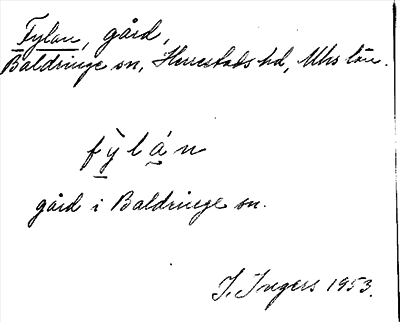 Fylan, gård,
Baldringe sn, Herrestads hd, Mhs län.
fỳlán
gård i Baldringe sn.
I. Ingers 1953.